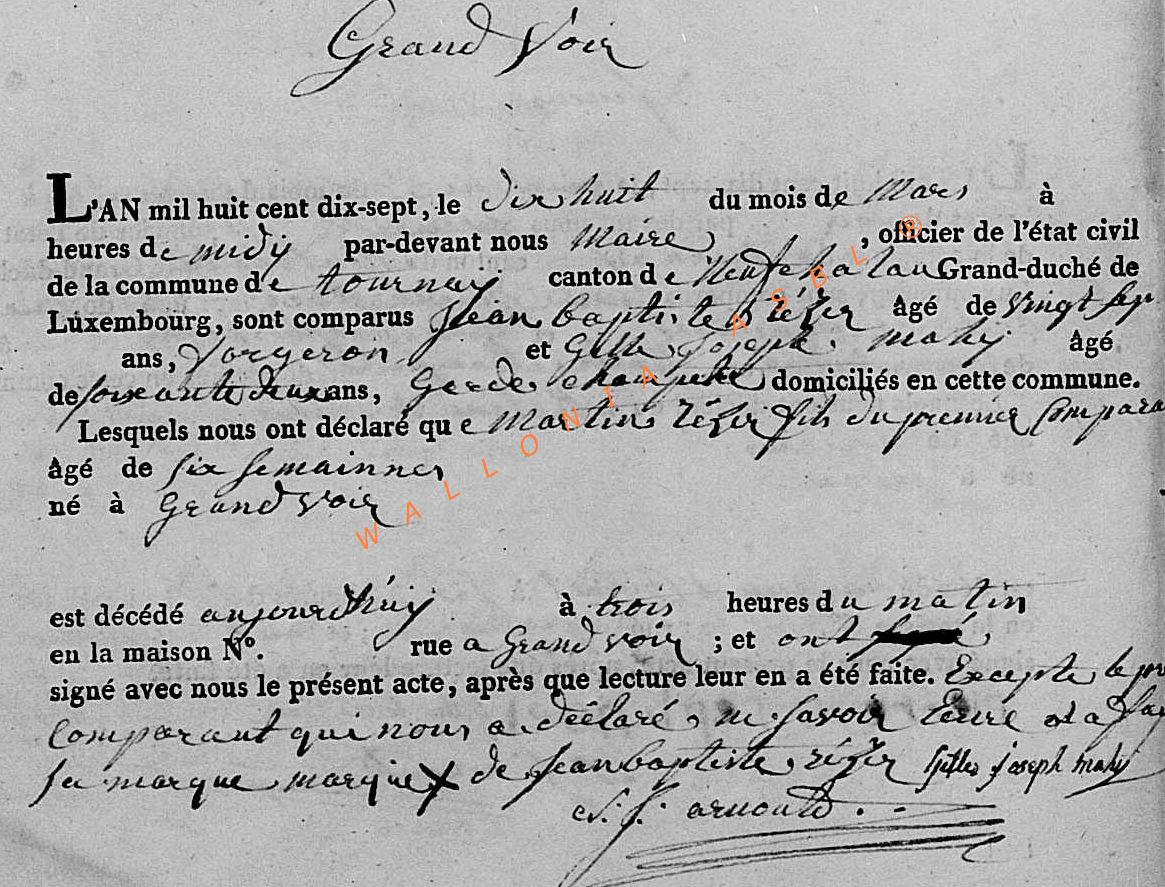 Grand Voir
L'AN mil huit cent dix-sept, le dix huit du mois de Mars à
heures de midÿ par-devant nous Maire, officier de l'état civil
de la commune de tournay canton de Neufchatau Grand-duché de
Luxembourg, sont comparus Jean baptiste âgé de vingt sep
ans, forgeron et Gille Joseph mahÿ âgé
de soixante deux ans, Garde champetre domiciliés en cette commune.
Lesquels nous ont déclaré que martin fils du premier Compara
âgé de six semainnes
né à Grand voir
est décédé aujourdhuÿ à trois heures du matin
en la maison N°. rue a Grand voir ; et ont
signé avec nous le présent acte, après que lecture leur en a été faite. Excepte le pre
Comparant qui nous a déclaré ne savoir Ecrire et a fai
sa marque marque X de Jean baptiste Gilles joseph mahÿ
arnould
WALLONIA ASBL ®